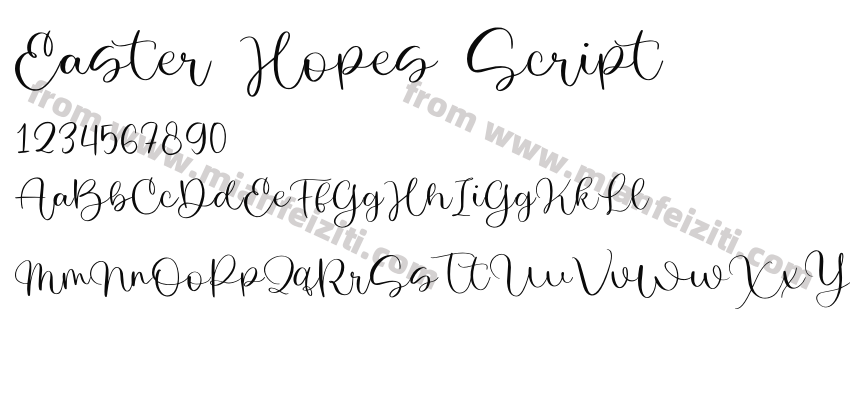 Easter Hopes Script
1234567890
AaBbCcDdEeFfGgHhIiGgKkLl
MmNnOoPpQqRrSsTtUuVvWwXxY
from www.mianfeiziti.com
from www.mianfeiziti.com